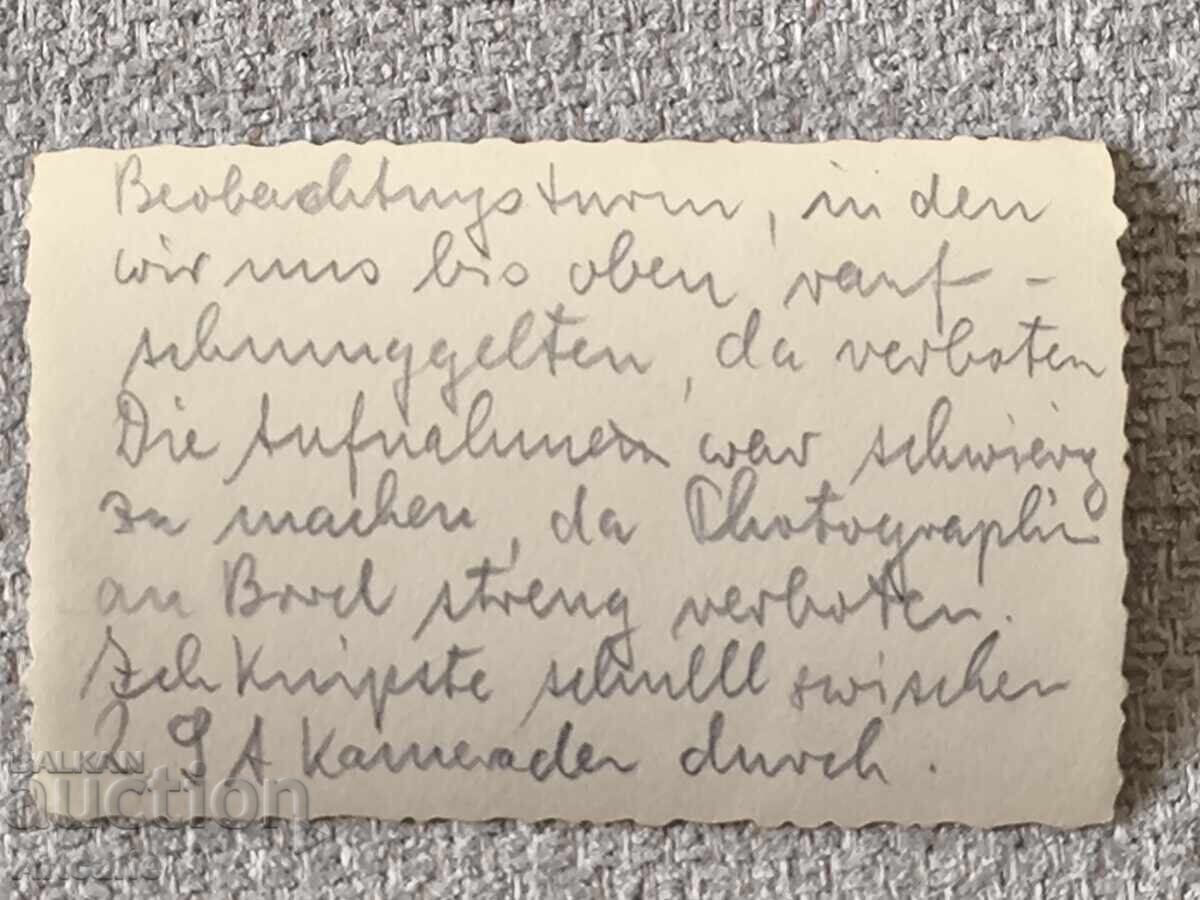 Beobachtungsturm, in den
wir uns bis oben rauf-
schmuggelten, da verboten
Die Aufnahme war schwierg
zu machen, da Photographi
an Bord streng verboten.
Ich Knipste schnell zwischen
2 SA Kameraden durch.
BALKAN
auction